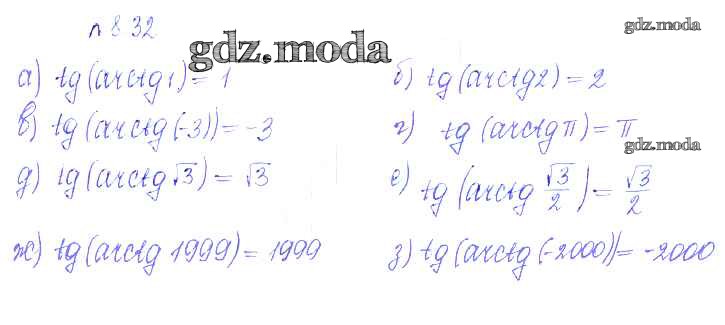 n 8.32
gdz.moda
gdz.moda
а) tg(arctg1) = 1
б) tg(arctg2) = 2
в) tg(arctg(-3)) = -3
г) tg(arctgπ) = π
gdz.moda
д) tg(arctg√3) = √3
е) tg(arctg √3/2) = √3/2
ж) tg(arctg 1999) = 1999
з) tg(arctg(-2000)) = -2000